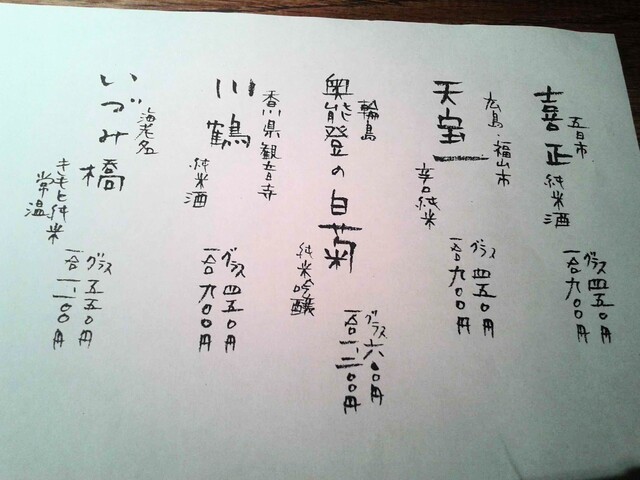 五日市
喜正 純米酒
グラス 四五〇円
一合 九〇〇円
広島・福山市
天宝一
辛口純米
グラス 四五〇円
一合 九〇〇円
輪島
奥能登の白菊
純米吟醸
グラス 六〇〇円
一合 一、二〇〇円
香川県観音寺
川鶴
純米酒
グラス 四五〇円
一合 九〇〇円
海老名
いづみ橋
キモト純米
常温
グラス 五五〇円
一合 一、一〇〇円